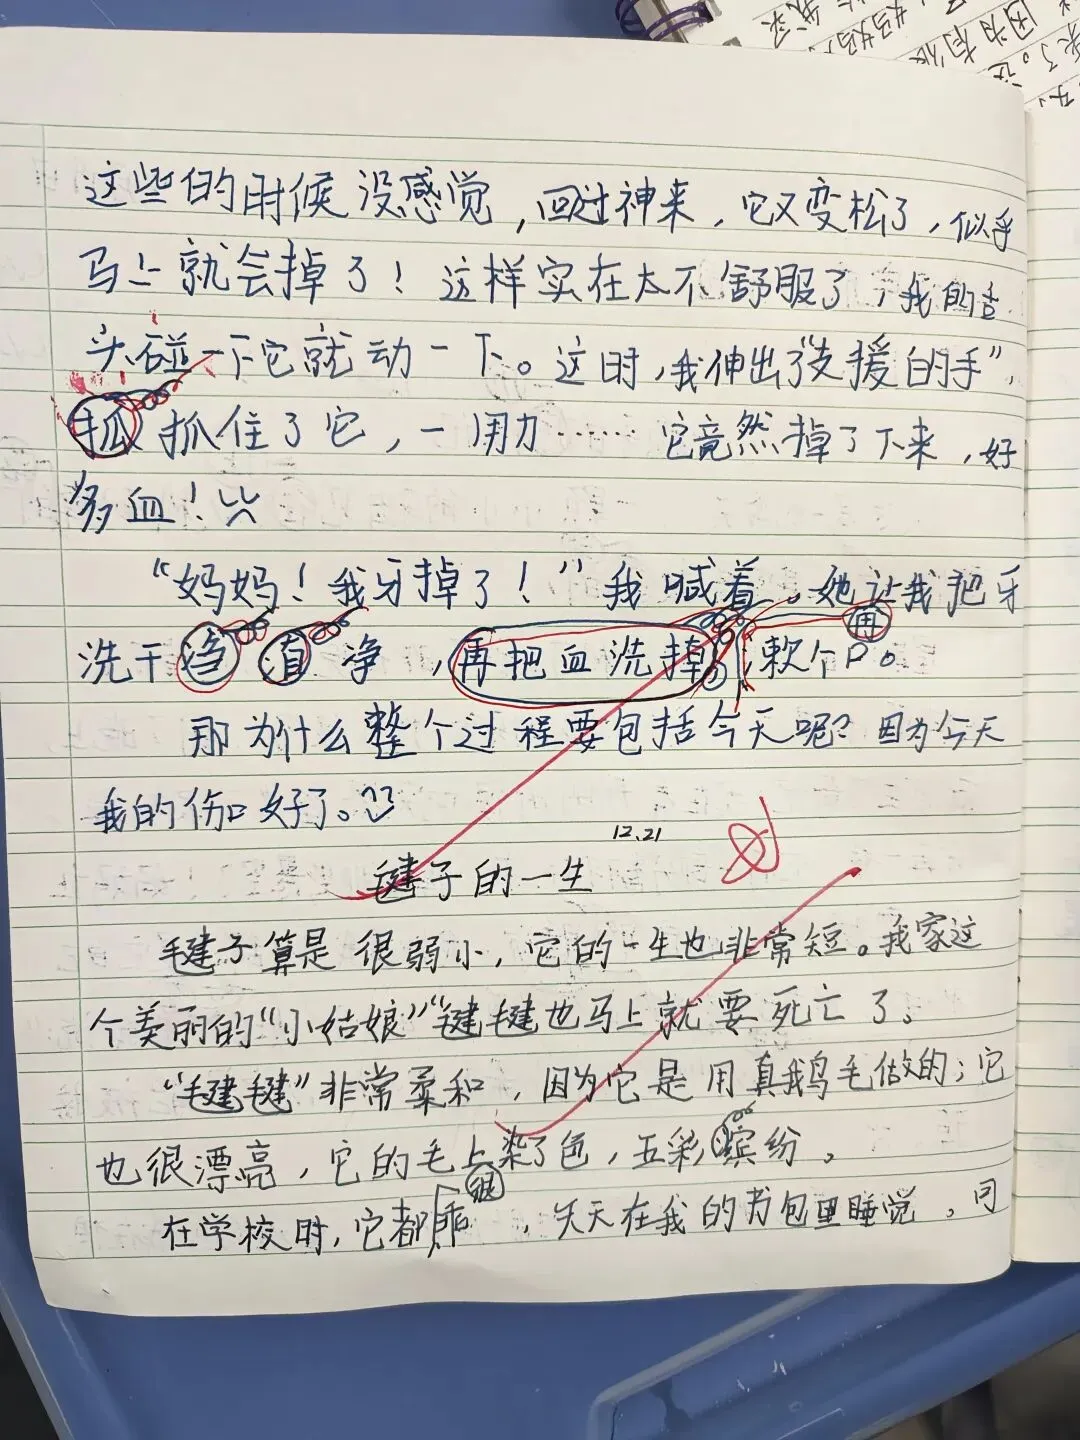 这些的时候没感觉，回过神来，它又变松了，似乎
马上就会掉了！这样实在太不舒服了，我的舌
头碰一下它就动一下。这时，我伸出了“支援的手”，
抓 抓住了它，一用力……它竟然掉了下来，好
多血！
“妈妈！我牙掉了！”我喊着。她让我把牙
洗干 净，再把血洗掉 再 漱个口。
那为什么整个过程要包括今天呢？因为今天
我的伤口好了。
12.21
毽子的一生
毽子算是很弱小，它的一生也非常短。我家这
个美丽的“小姑娘”“毽毽也马上就要死亡了。
“毽毽”非常柔和，因为它是用真鹅毛做的；它
也很漂亮，它的毛上染了色，五彩缤纷。
在学校时，它都 很 乖，天天在我的书包里睡觉。同